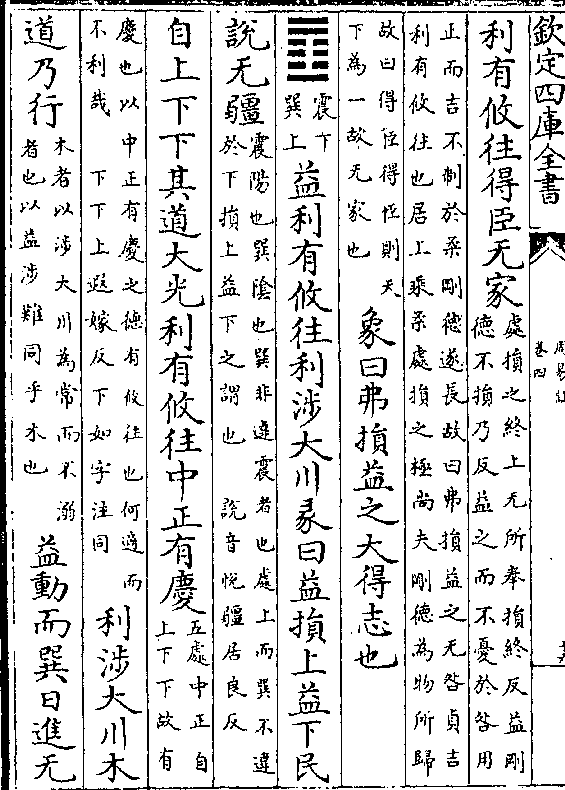 欽定四庫全書
周易註
卷四
利有攸往得臣无家
處損之終上无所奉損終反益剛
德不損乃反益之而不憂於咎用
正而吉不制於柔剛德遂長故曰弗損益之无咎貞吉
利有攸往也居上乘柔處損之極尚夫剛德為物所歸
故曰得臣得臣則天
下為一故无家也
象曰弗損益之大得志也
䷩
震下
巽上
益利有攸往利涉大川彖曰益損上益下民
說无疆
震陽也巽陰也巽非違震者也處上而巽不違
於下損上益下之謂也 說音悅疆居良反
自上下下其道大光利有攸往中正有慶
五處中正自
上下下故有
慶也以中正有慶之德有攸往也何適而
不利哉 下下上遐嫁反下如字注同
利涉大川木
道乃行
木者以涉大川為常而不溺
者也以益涉難同乎木也
益動而巽日進无